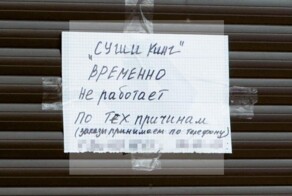 "СУШИ КИНГ"
ВРЕМЕННО
Не работает
ПО ТЕХ ПРИЧИНАМ
(заказы принимаем по телефону)